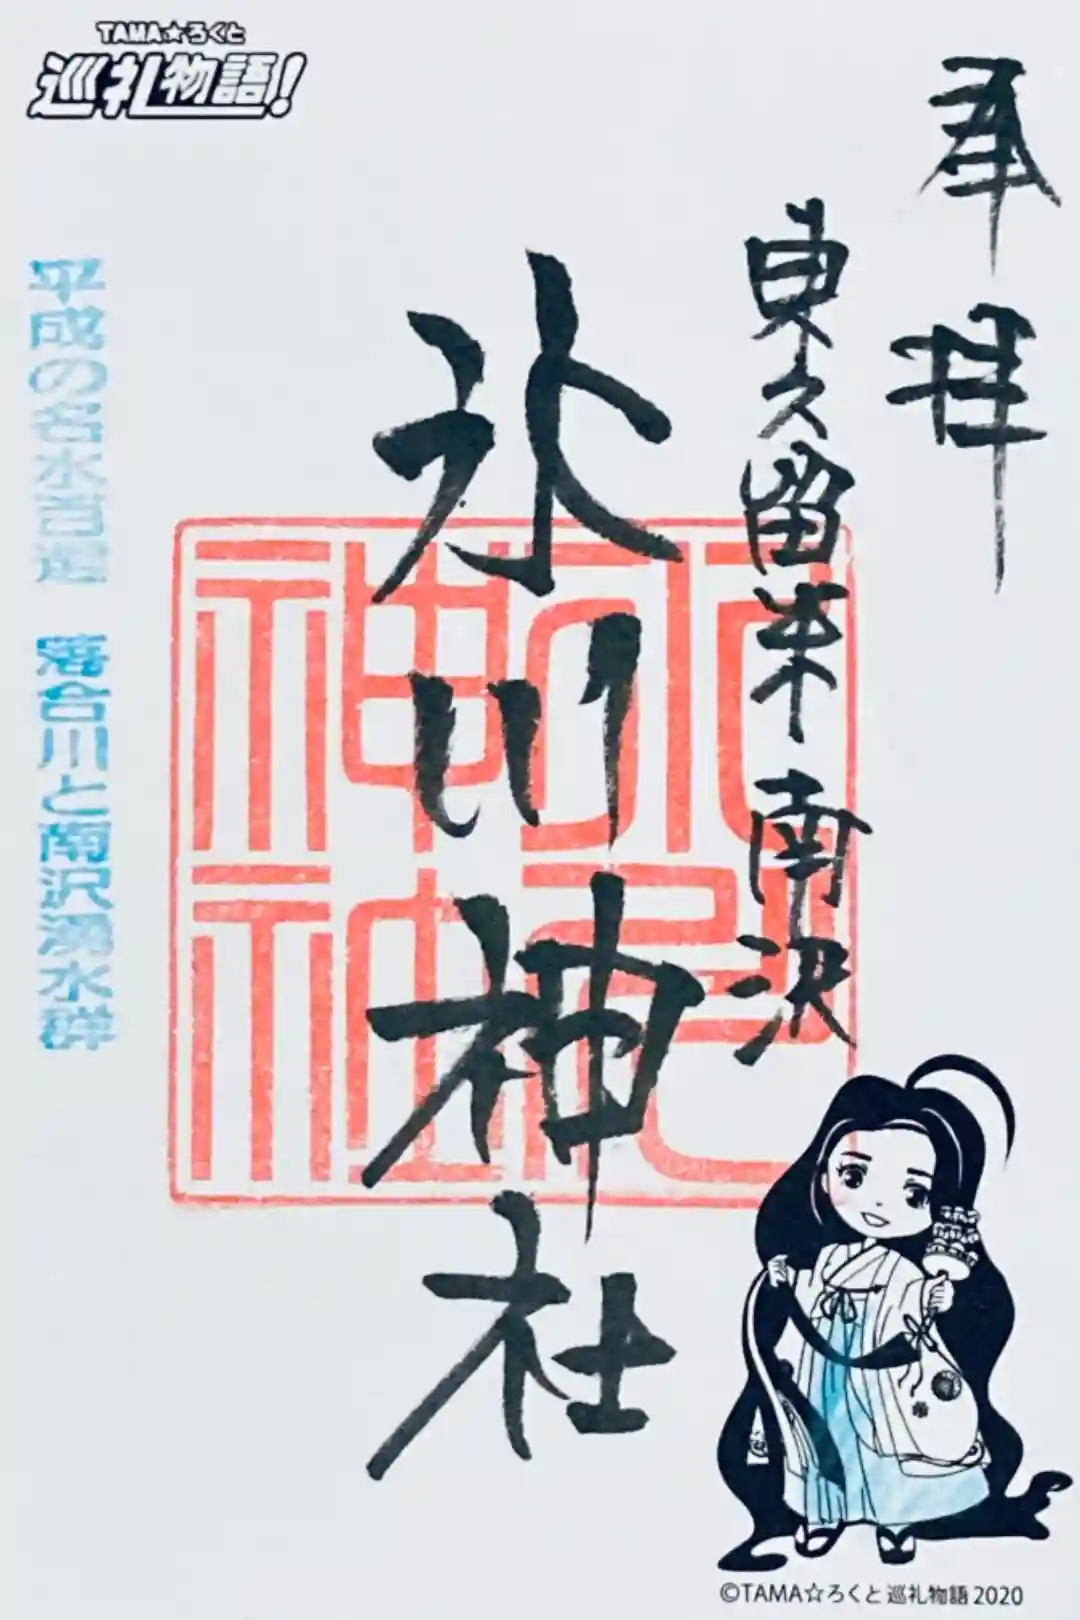 TAMA☆ろくと
巡礼物語!
奉拝
東久留米 南沢
氷川神社
平成の名水百選 落合川と南沢湧水群
©TAMA☆ろくと 巡礼物語 2020